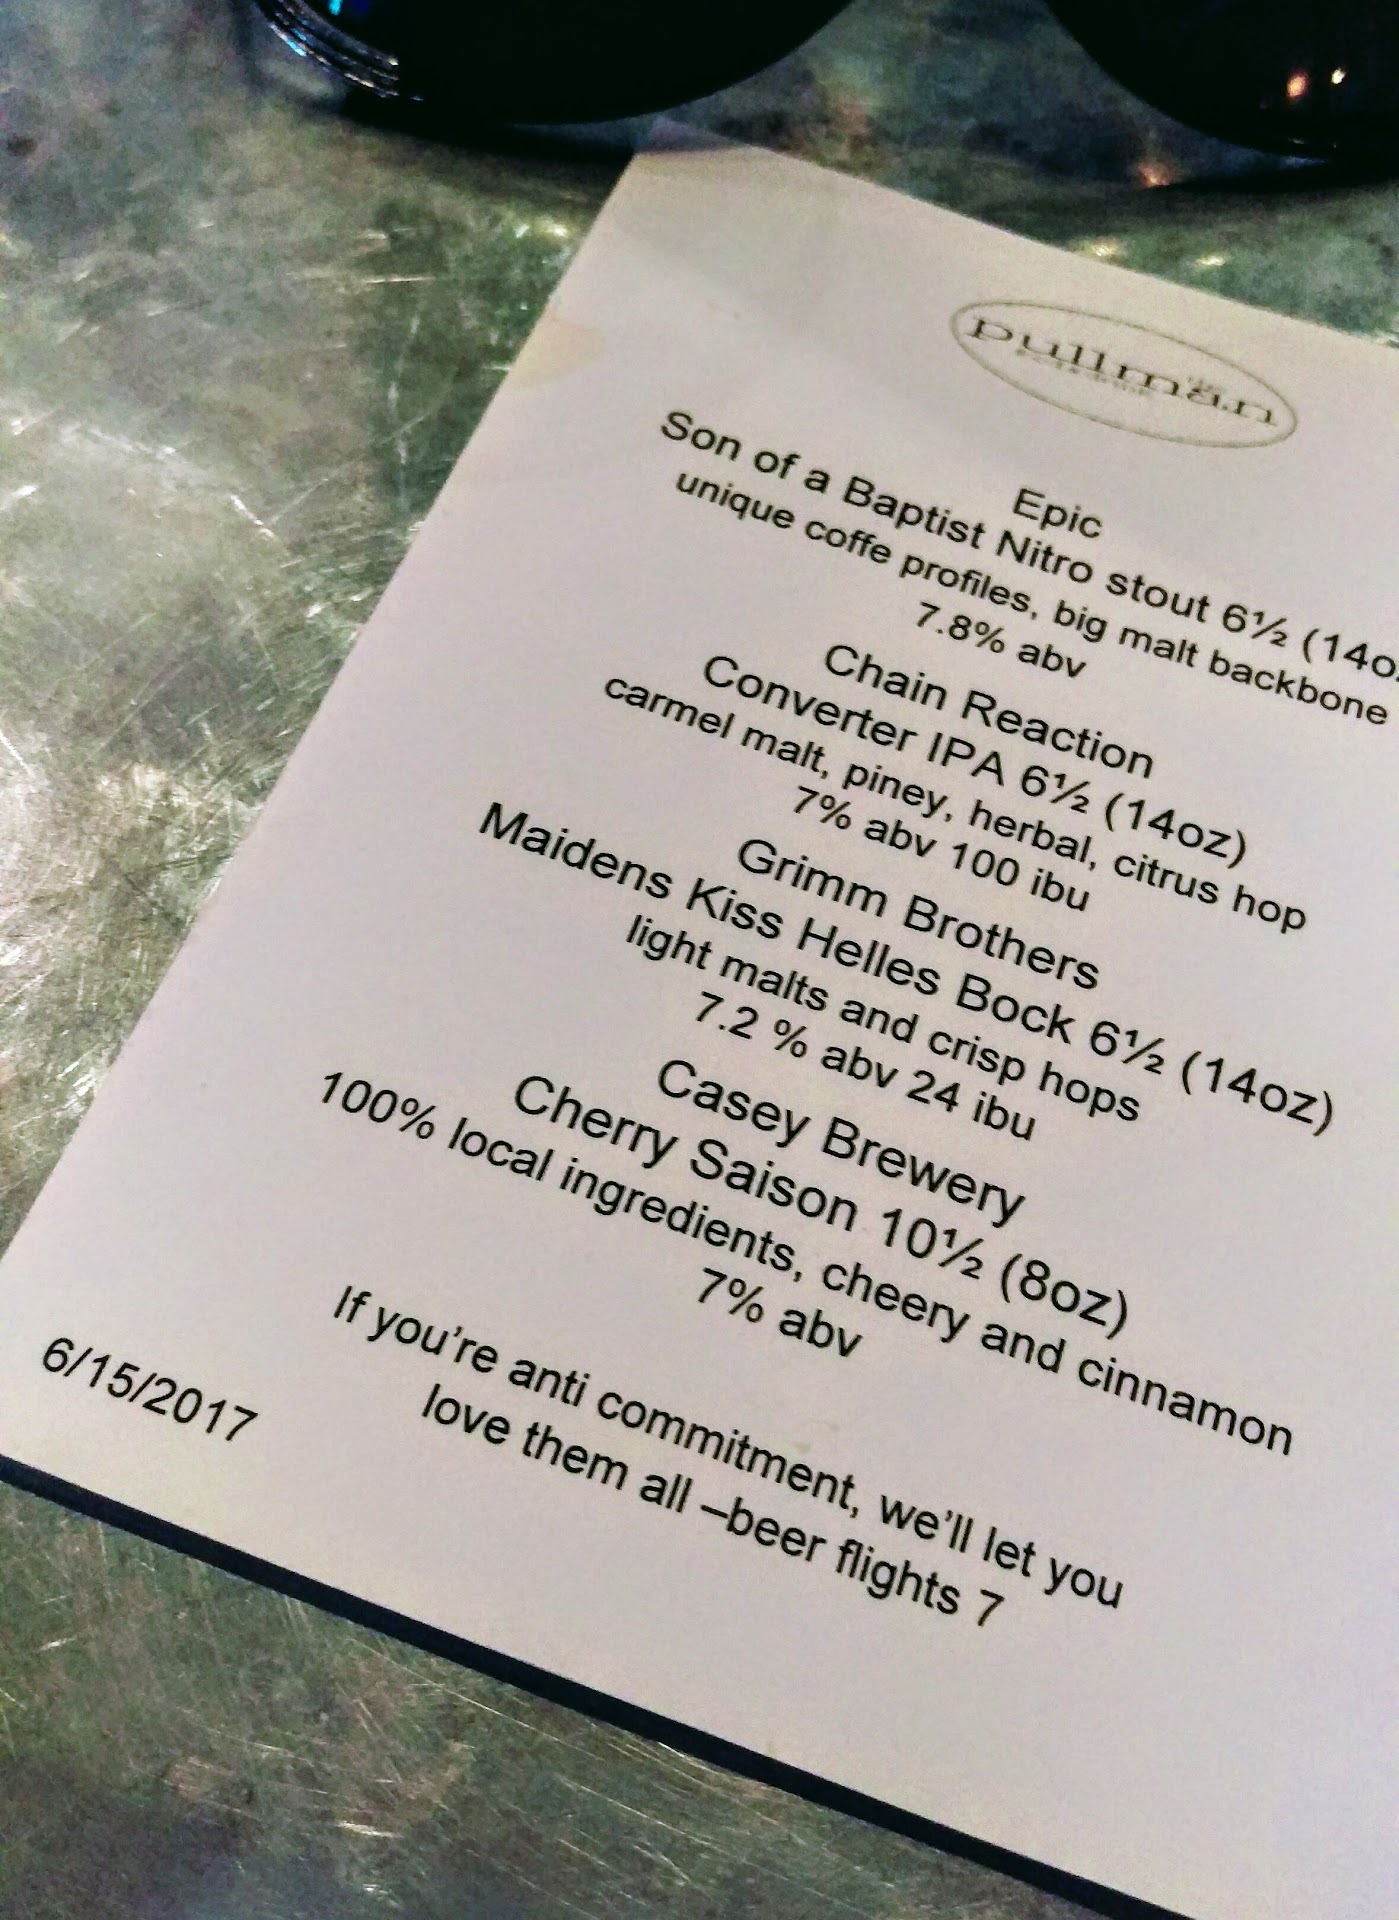 pullman
Epic
Son of a Baptist Nitro stout 6½ (14oz
unique coffe profiles, big malt backbone
7.8% abv
Chain Reaction
Converter IPA 6½ (14oz)
carmel malt, piney, herbal, citrus hop
7% abv 100 ibu
Grimm Brothers
Maidens Kiss Helles Bock 6½ (14oz)
light malts and crisp hops
7.2 % abv 24 ibu
Casey Brewery
Cherry Saison 10½ (8oz)
100% local ingredients, cheery and cinnamon
7% abv
If you're anti commitment, we'll let you
love them all –beer flights 7
6/15/2017